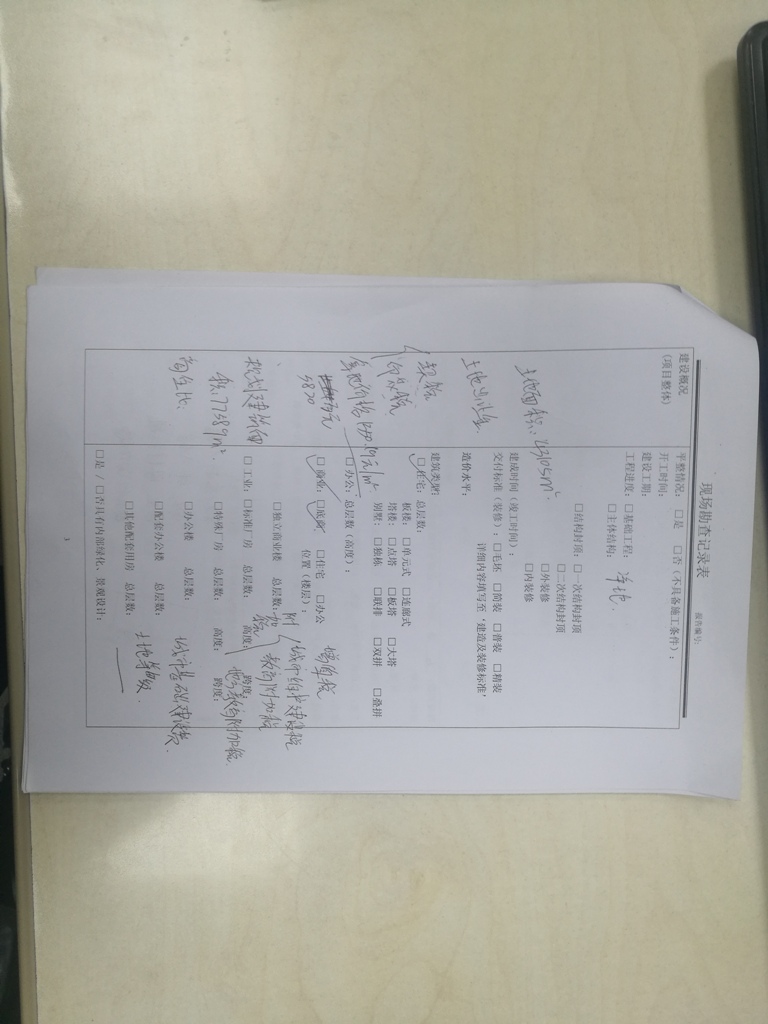 现场勘查记录表
报告编号:
建设概况
(项目整体)
平整情况: □是 □否(不具备施工条件):
开工时间:
建设工期:
工程进度: □基础工程: 净地.
□主体结构:
□结构封顶: □一次结构封顶
□二次结构封顶
□外装修
□内装修
建成时间(竣工时间):
交付标准(装修): □毛坯 □简装 □普装 □精装
详细内容填写至‘建造及装修标准’
造价水平:
建筑类型:
□住宅: 总层数:
板楼: □单元式 □连廊式
塔楼: □点塔 □板塔 □大塔
别墅: □独栋 □联排 □双拼 □叠拼
□办公: 总层数(高度):
□商业: □底商, □住宅 □办公
位置(楼层):
□独立商业楼 总层数:
□工业: □标准厂房 总层数: 高度: 跨度:
□特殊厂房 总层数: 高度: 跨度:
□办公楼 总层数:
□配套办公楼 总层数:
□其他配套用房 总层数:
□是 / □否具有内部绿化、景观设计:
土地面积: 43105m².
土地出让金
契税
印花税
5820
万元
规划建筑面
积: 77589m².
容积比:
增值税
附加税
城市维护建设税
教育附加税
地方教育附加税.
城市基础建设费.
土地等级.